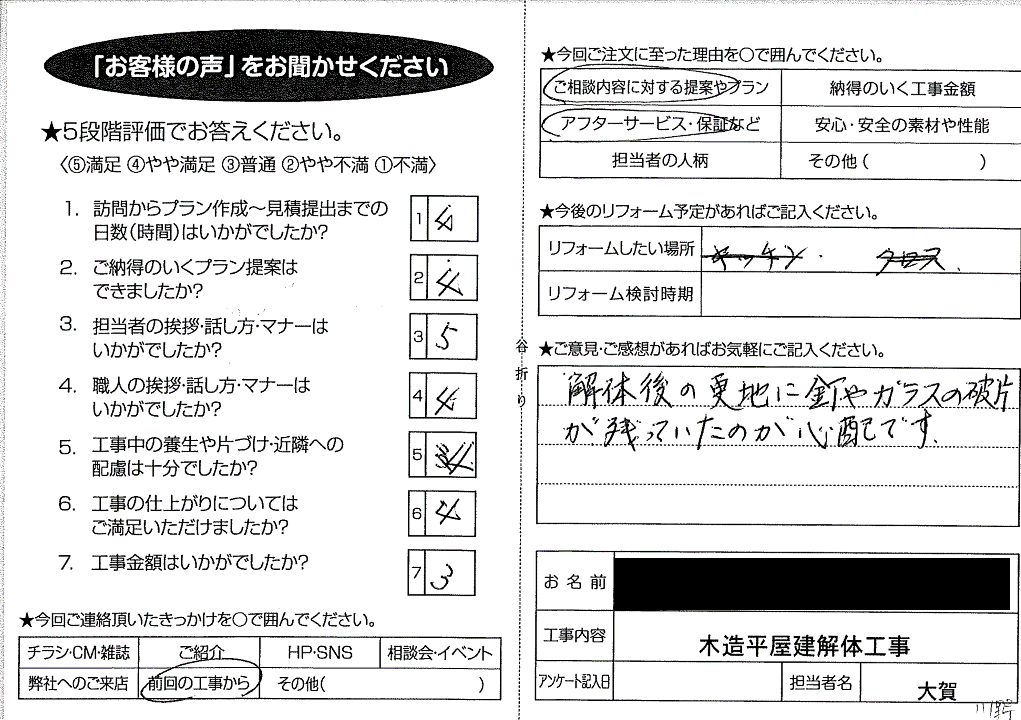 「お客様の声」をお聞かせください
★5段階評価でお答えください。
〈⑤満足 ④やや満足 ③普通 ②やや不満 ①不満〉
1. 訪問からプラン作成～見積提出までの
日数(時間)はいかがでしたか?
1 4
2. ご納得のいくプラン提案は
できましたか?
2 4
3. 担当者の挨拶・話し方・マナーは
いかがでしたか?
3 5
4. 職人の挨拶・話し方・マナーは
いかがでしたか?
4 4
5. 工事中の養生や片づけ・近隣への
配慮は十分でしたか?
5
6. 工事の仕上がりについては
ご満足いただけましたか?
6 4
7. 工事金額はいかがでしたか?
7 3
★今回ご連絡頂いたきっかけを〇で囲んでください。
チラシ・CM・雑誌 ご紹介 HP・SNS 相談会・イベント
弊社へのご来店 前回の工事から その他( )
谷折り
★今回ご注文に至った理由を〇で囲んでください。
ご相談内容に対する提案やプラン 納得のいく工事金額
アフターサービス・保証など 安心・安全の素材や性能
担当者の人柄 その他( )
★今後のリフォーム予定があればご記入ください。
リフォームしたい場所 キッチン . クロス.
リフォーム検討時期
★ご意見・ご感想があればお気軽にご記入ください。
解体後の更地に釘やガラスの破片
が残っていたのが心配です.
お名前
工事内容 木造平屋建解体工事
アンケート記入日 担当者名 大賀